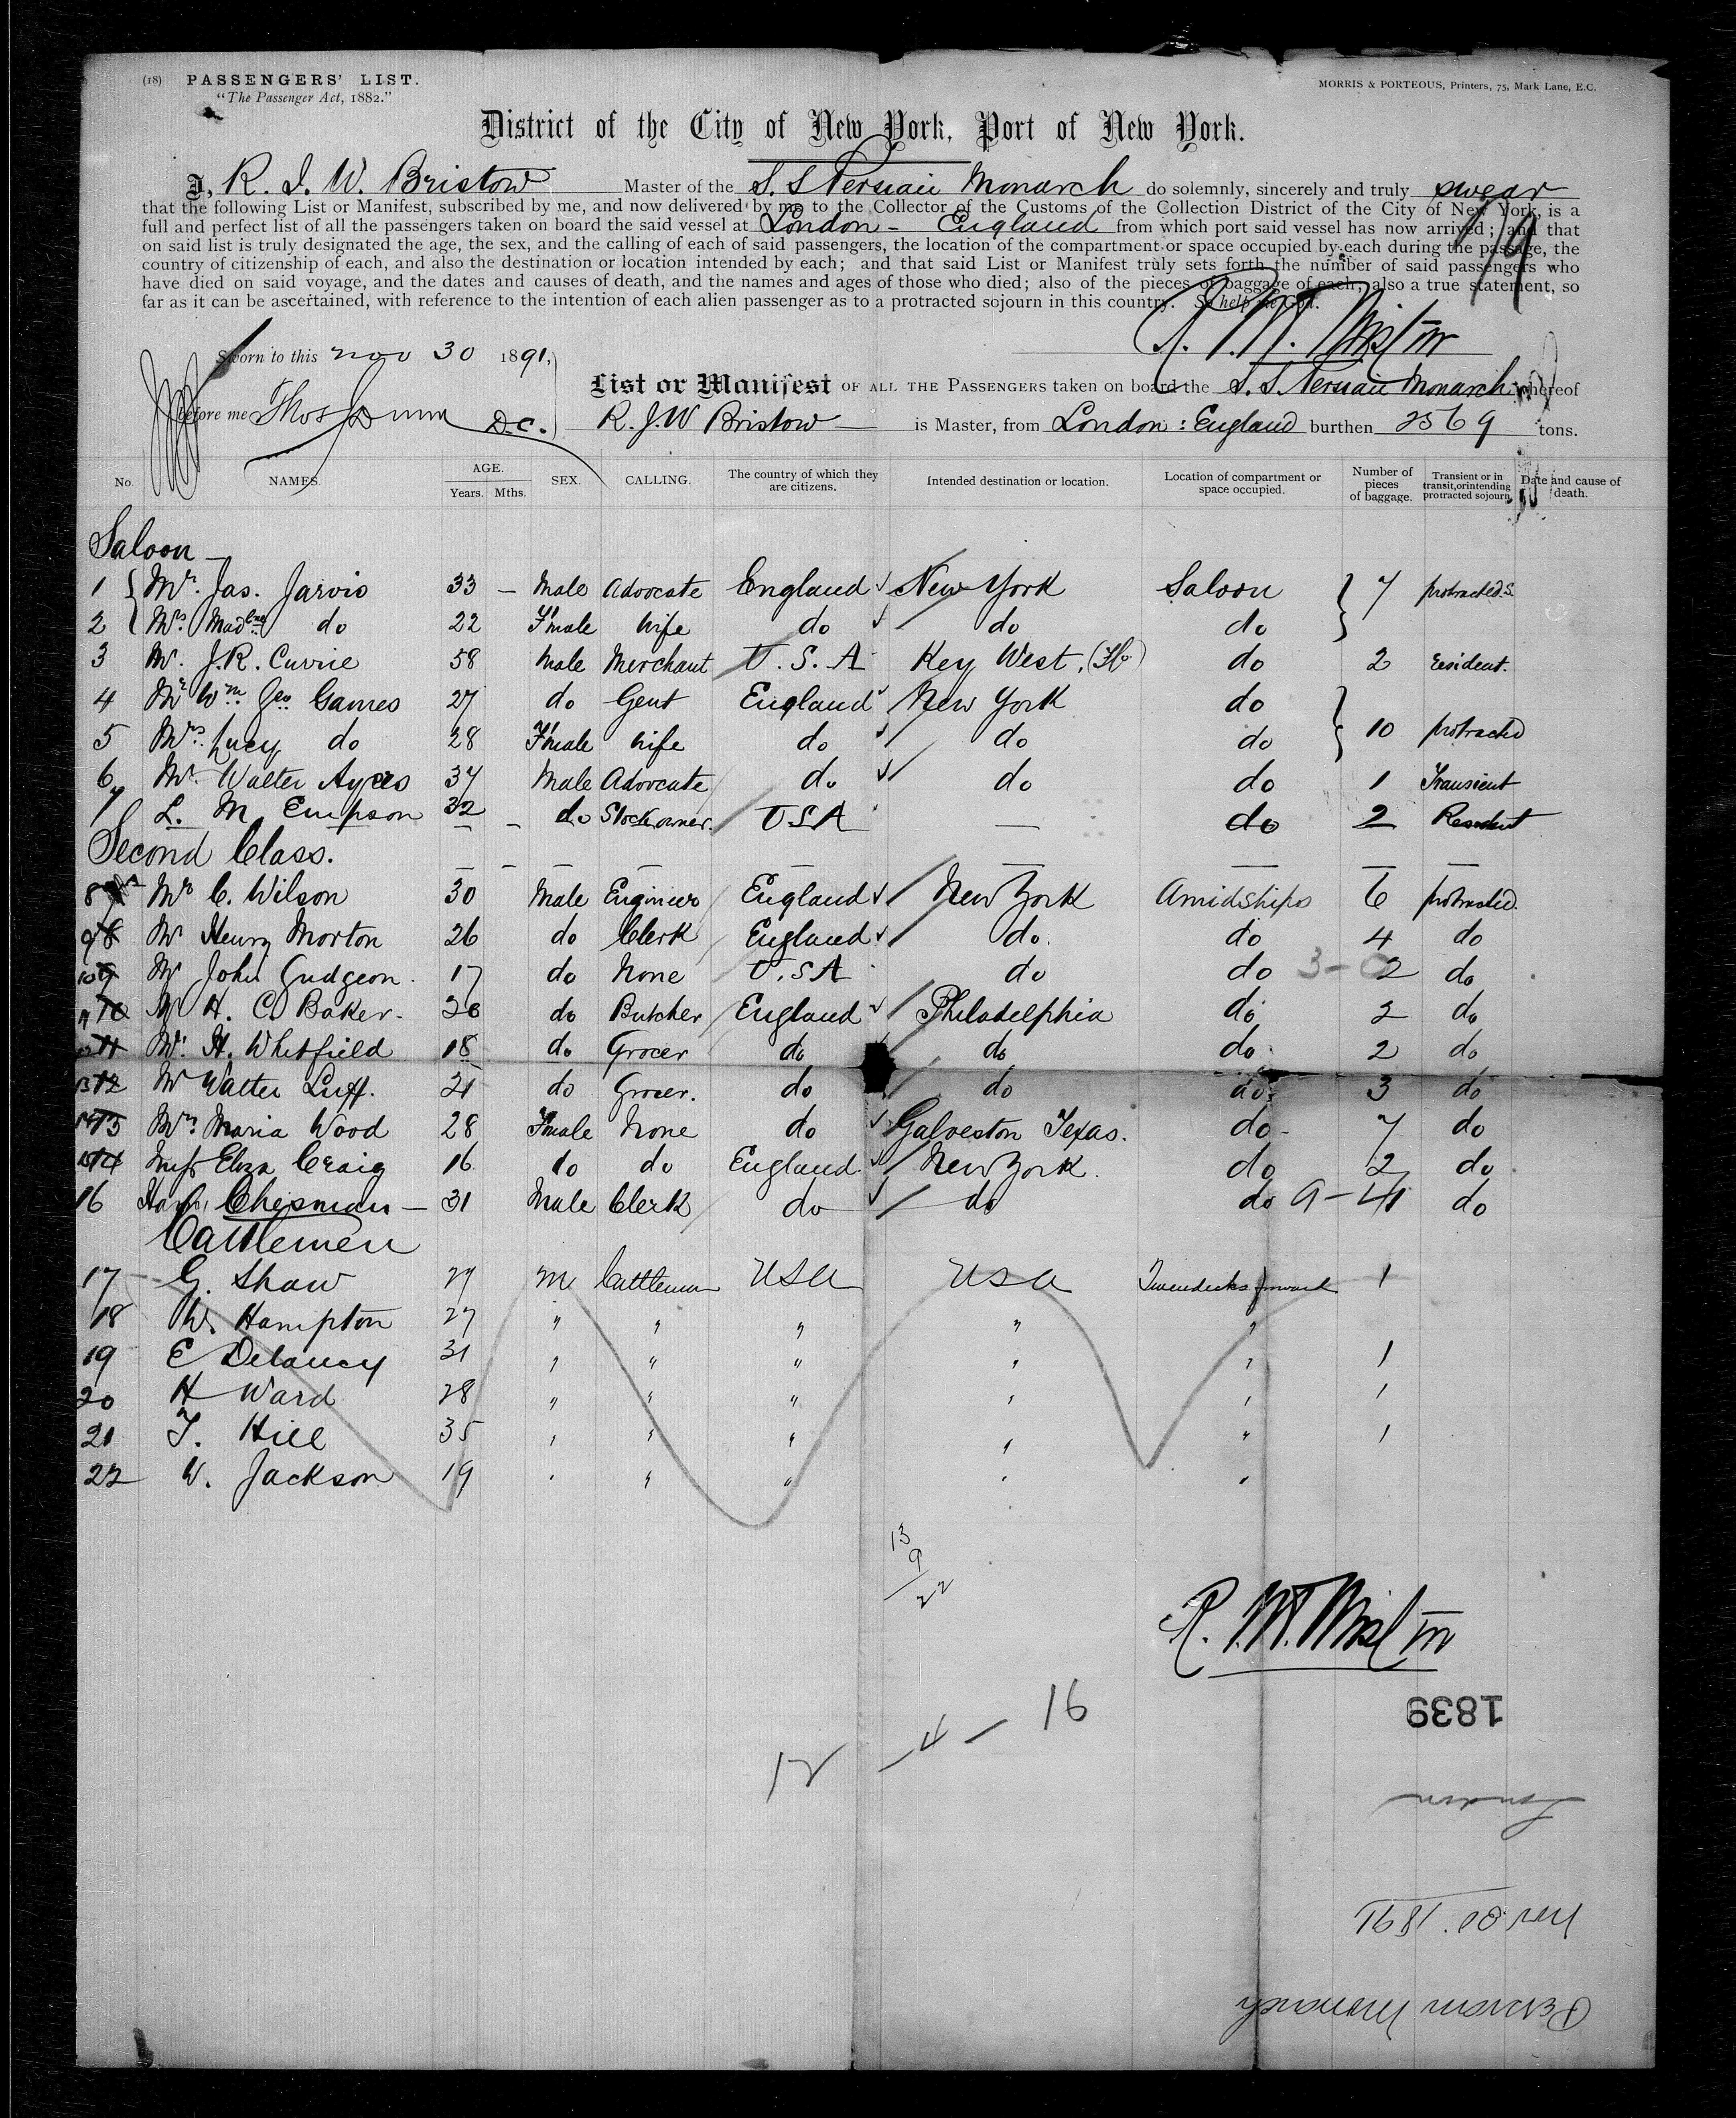 (18) PASSENGERS' LIST.
"The Passenger Act, 1882."
MORRIS & PORTEOUS, Printers, 75, Mark Lane, E.C.
District of the City of New York, Port of New York.
I, R. J. W. Bristow Master of the S. S Persian Monarch do solemnly, sincerely and truly swear
that the following List or Manifest, subscribed by me, and now delivered by me to the Collector of the Customs of the Collection District of the City of New York, is a
full and perfect list of all the passengers taken on board the said vessel at London - England from which port said vessel has now arrived; and that
on said list is truly designated the age, the sex, and the calling of each of said passengers, the location of the compartment or space occupied by each during the passage, the
country of citizenship of each, and also the destination or location intended by each; and that said List or Manifest truly sets forth the number of said passengers who
have died on said voyage, and the dates and causes of death, and the names and ages of those who died; also of the pieces of baggage of each; also a true statement, so
far as it can be ascertained, with reference to the intention of each alien passenger as to a protracted sojourn in this country. So help me God.
R. J. W. Bristow
Sworn to this Nov 30 1891,
before me Thos Dunn D.C.
List or Manifest OF ALL THE PASSENGERS taken on board the S. S. Persian Monarch whereof
R. J. W Bristow is Master, from London : England burthen 2569 tons.
No. NAMES. AGE. Years. Mths. SEX. CALLING. The country of which they are citizens. Intended destination or location. Location of compartment or space occupied. Number of pieces of baggage. Transient or in transit, or intending protracted sojourn. Date and cause of death.
Saloon -
1 Mr. Jas. Jarvis 33 - Male Advocate England New York Saloon 7 protracted S.
2 Mrs. do 22 Fmale Wife do do do
3 Mr. J. R. Currie 58 Male Merchant U. S. A Key West, do 2 resident.
4 Mr Wm Geo Games 27 do Gent England New York do
5 Mrs. Lucy do 28 Fmale Wife do do do 10 protracted
6 Mr. Walter Ayres 37 Male Advocate do do do 1 Transient
7 L. M. Empson 32 do Stockowner. U S A — do 2 Resident
Second Class.
8 Mr C. Wilson 30 Male Engineer England New York Amidships 6 protracted.
9 8 Mr Henry Morton 26 do Clerk England do. do 4 do
10 9 Mr John Gudgeon. 17 do None U. S A do do 3-0 2 do
11 10 Mr H. C. Baker. 20 do Butcher England Philadelphia do 2 do
12 11 Mr. H. Whitfield 18 do Grocer do do do 2 do
13 12 Mr Walter Luff. 21 do Grocer. do do do 3 do
14 13 Mrs Maria Wood 28 Fmale None do Galveston Texas. do - 7 do
15 14 Miss Eliza Craig 16 do do England New York. do 2 do
16 Chesman - 31 Male Clerk do do do 9-41 do
Cattlemen
17 G. Shaw 29 M Cattleman USA USA Tweendecks forward 1
18 W. Hampton 27 " " " " "
19 E Delancy 31 " " " " " 1
20 H Ward 28 " " " " " 1
21 T. Hill 35 " " " " " 1
22 W. Jackson 19 " " " " "
13
9
22
R. J. W. Bristow
12 - 4 - 16
1839
London
Nov 30. 1891
Persian Monarch